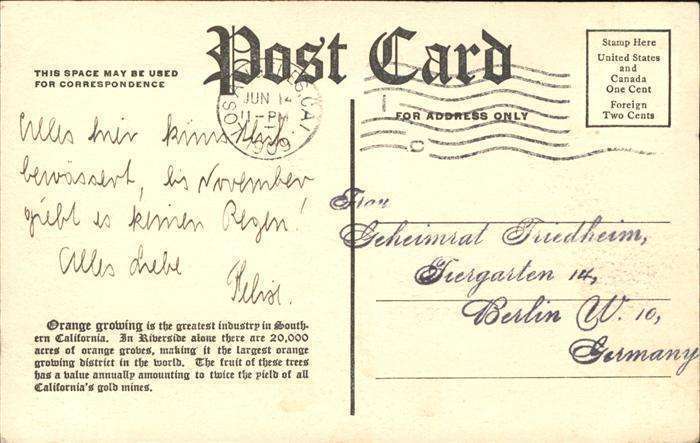 Post Card
THIS SPACE MAY BE USED
FOR CORRESPONDENCE
JUN 1
11-PM
1909
Stamp Here
United States
and
Canada
One Cent
Foreign
Two Cents
FOR ADDRESS ONLY
Alles hier künstlich
bewässert, bis November
giebt es keinen Regen!
Alles Liebe
Felix.
Frau
Geheimrat Friedheim,
Tiergarten 14,
Berlin W. 10,
Germany
Orange growing is the greatest industry in South-
ern California. In Riverside alone there are 20,000
acres of orange groves, making it the largest orange
growing district in the world. The fruit of these trees
has a value annually amounting to twice the yield of all
California's gold mines.